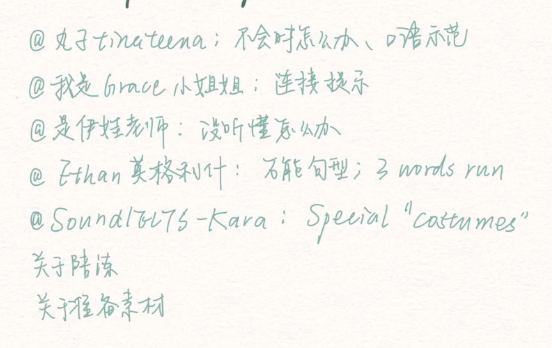 @丸子tinateena；不会时怎么办、口语示范
@我是Grace小姐姐；连接提示
@是伊娃老师：没听懂怎么办
@Ethan英格利什：万能句型；3 words run
@SoundIELTS-Kara：Special "costumes"
关于陪练
关于准备素材